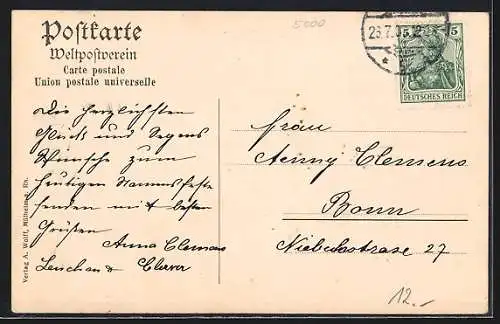 Postkarte
Weltpostverein
Carte postale
Union postale universelle
5000
5 5
DEUTSCHES REICH
Die herzlichsten
Glück und Segens
Wünsche zum
heutigen Namensfeste
senden mit besten
Grüßen
Anna Clemens
Frau
Aenny Clemens
Bonn
Niebuhrstrasse 27
Verlag A. Wolff, Mülheim a. Rh.
12.-